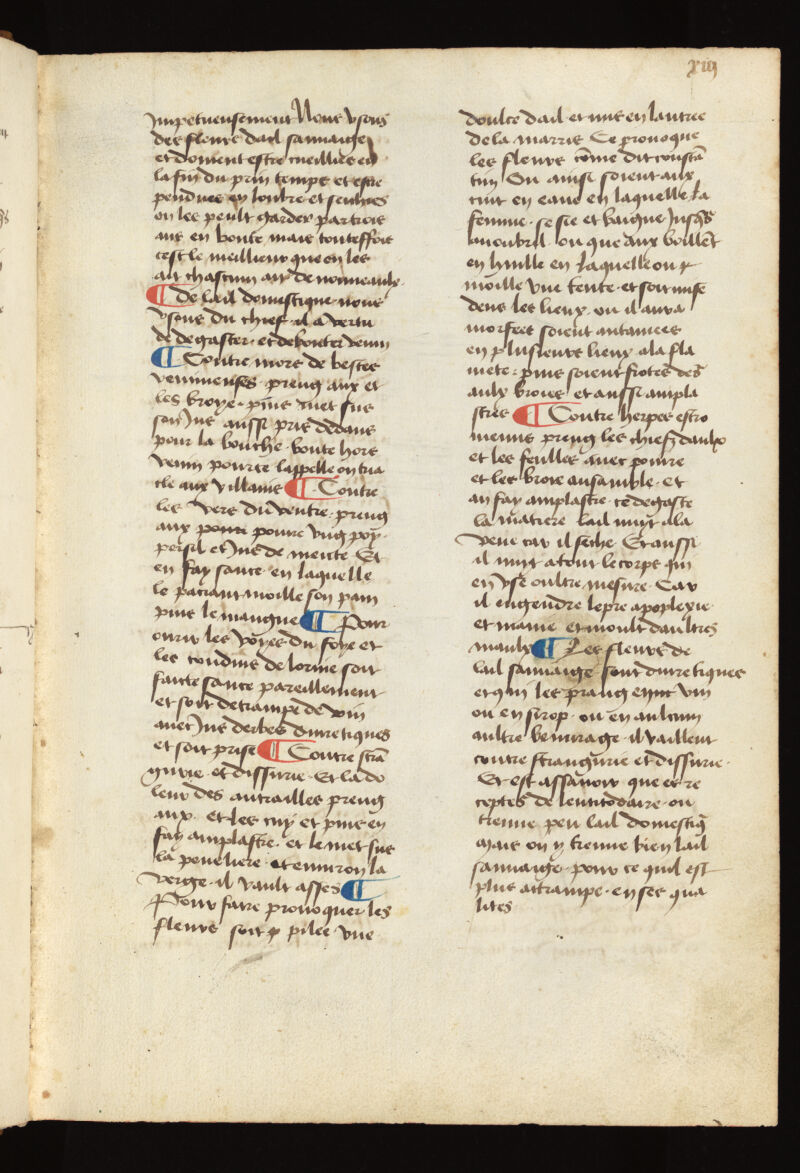 xiiij
Impetueusement Nous vsons
des fleurs dail sauuaige
et doiuent estre cueillies en
la fin du prin temps et estre
pendues en lombre et seichees
on les peult garder par trois
ans en bonte mais touteffois
cest le meilleur que on les
ait chascun an de nouueaulx
¶ De lail domestique nous
vsons du chief il a vertu
de degaster et debouter venin
¶ Contre mors de bestes
venimeuses preng aux et
les broye puis met sus
soit Jus aussi pris dedans
pour la bouche boute hors
venin pource lappelle on tria
cle aux villains ¶ Contre
les vers du ventre preng
aux poiure vng poy
persil et Jus de mente Et
en fay sauce en laquelle
le pacient moille son pain
puis le mangue ¶ Pour
ourir les voyes du foye et
les conduis de lorine soit
faicte sauce pareillement
et soit destrampe de vin
auec Jus derbes diuretiques
et soit prise ¶ Contre stra
gurie et dissurie Et la do
leur des entrailles preng
aux et les cuy et puis en
fay amplastre et le met sus
la penilliere et enuiron la
verge il vault asses ¶
Pour faire prouoquer les
fleurs soit pilee vne
doulce dail et mis en lentree
de la marris Ce prouoque
les fleurs cõme dit constã
tin Ou ainsi soient aux
cuit en eaue en laquelle la
femme se sie et baigne Jusqs
au nombril ou que aux boillẽt
en huille en laquelle on
moille vne tente et soit mise
dens les lieux ou il aura
morfees soient antamees
en plusieurs lieux a la fla
mete puis soient frotes des
aulx broies et aussi ampla
stres ¶ Contre herpes estio
menus preng les chiefz daulx
et les feulles auec poiure
et les broie ansamble et
an fay amplastre ce degaste
la matiere lail nuyt a la
veue car il seche Et aussi
il nuyt a tout le corps qui
en vse oultre mesure Car
il engendre lepre apoplexie
et manie et moult daultres
maulx ¶ Les fleurs de
lail sauuaige sont diuretiques
et qui les prang en vin
ou en sirop ou en aulcun
aultre beuurage il vaillent
contre strangurie et dissurie
Et est assauoir que es re
ceptes de lentitodaire on
treuue peu lail domestiq
mais on y treuue bien lail
sauuaige pour ce quil est
plus attrampe en ses qua
lites